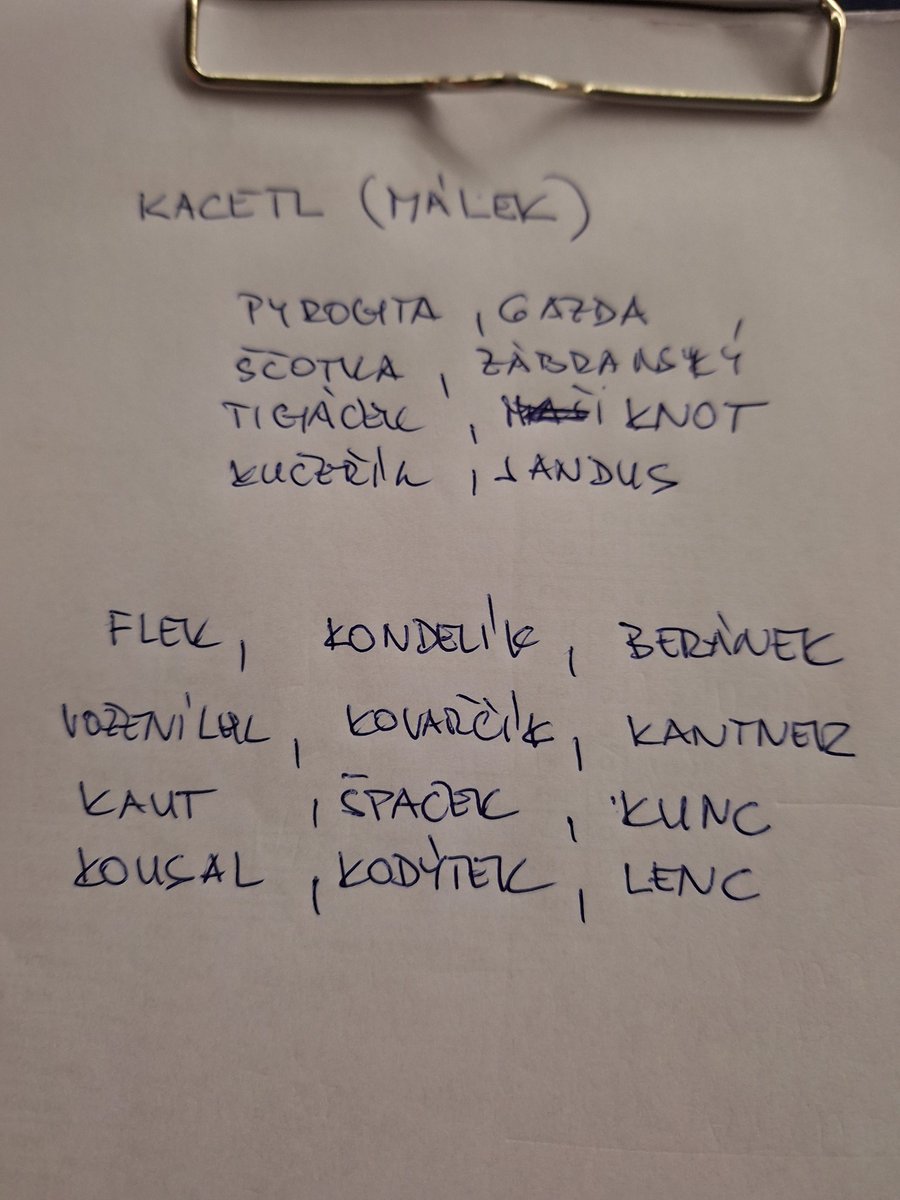 KACETL (MÁLEK)
PYROCHTA, GAZDA
ŠČOTKA, ZÁBRANSKÝ
TICHÁČEK, KNOT
KUČEŘÍK, JANDUS
FLEK, KONDELÍK, BERÁNEK
VOŽENÍLEK, KOVARČÍK, KANTNER
KAUT, ŠPAČEK, KUNC
KOUSAL, KODÝTEK, LENC